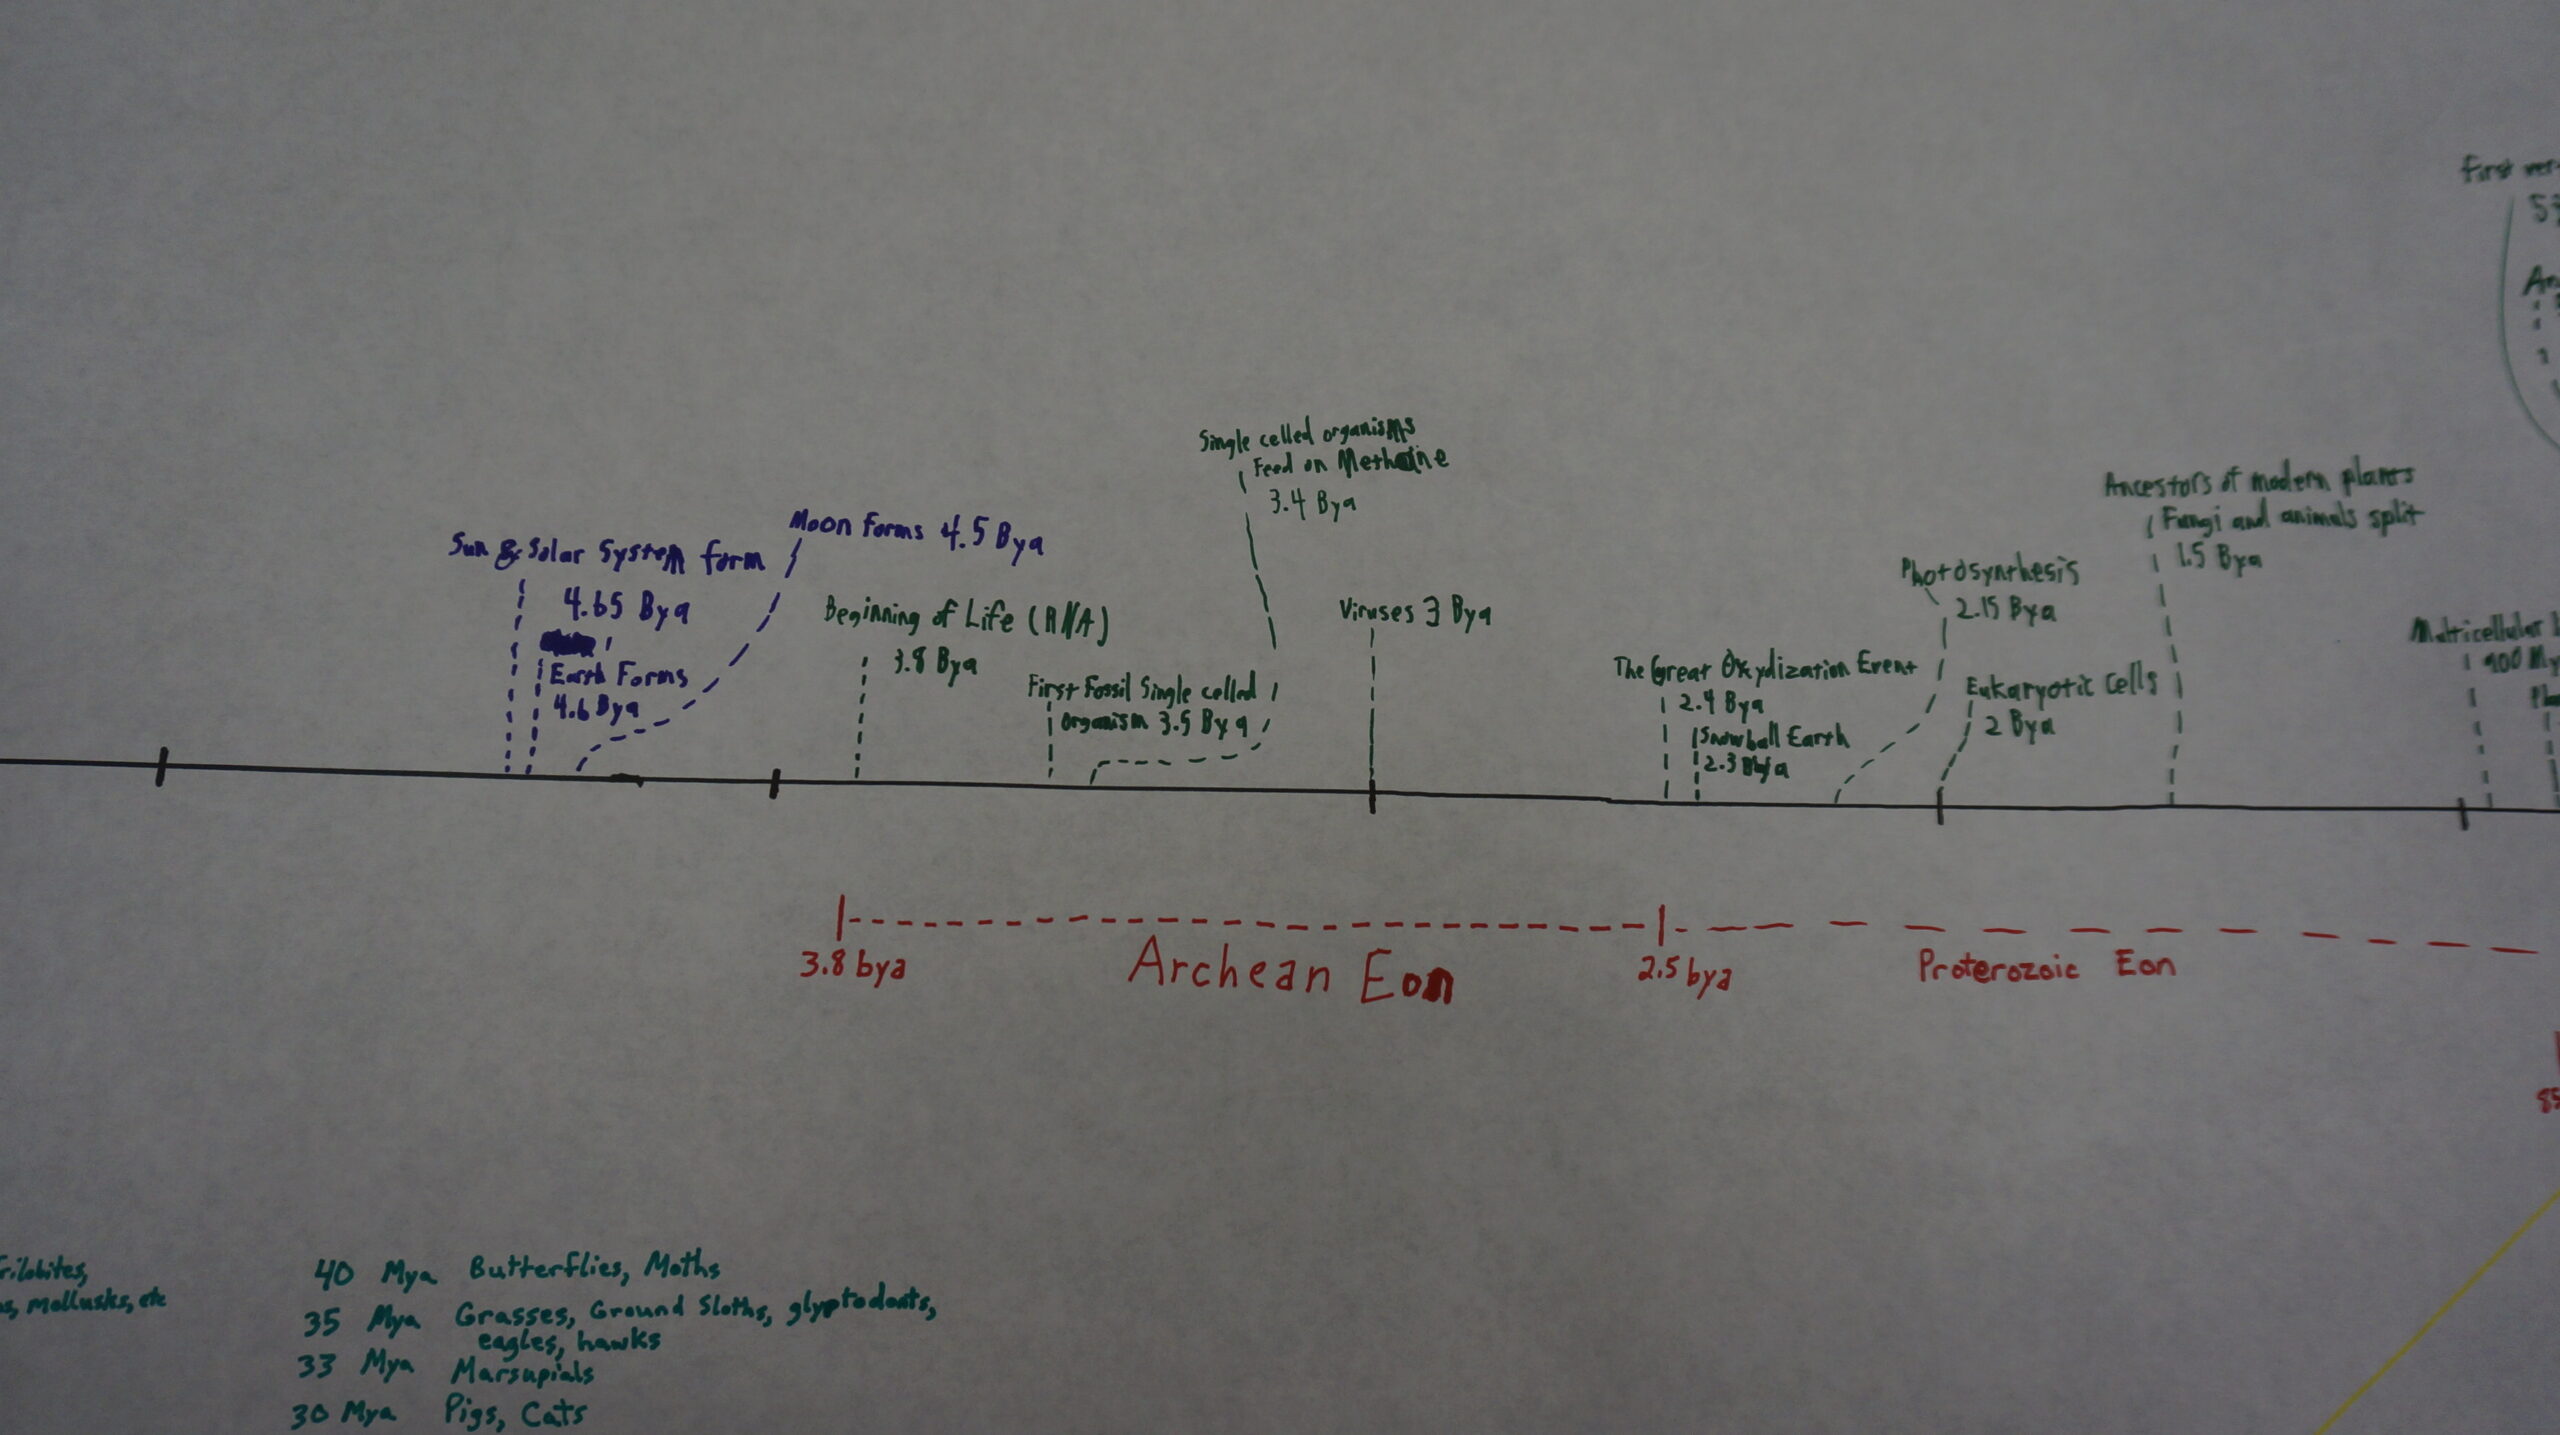 First
Single celled organisms
Feed on Methane
3.4 Bya
Ancestors of modern plants
Fungi and animals split
1.5 Bya
Moon Forms 4.5 Bya
Sun & Solar System form
4.65 Bya
Earth Forms
4.6 Bya
Beginning of Life (RNA)
3.8 Bya
First Fossil Single celled
organism 3.5 Bya
Viruses 3 Bya
Photosynthesis
2.15 Bya
The Great Oxydization Event
2.4 Bya
Snowball Earth
2.3 Bya
Eukaryotic Cells
2 Bya
Multicellular
900 My
3.8 bya
Archean Eon
2.5 bya
Proterozoic Eon
mollusks, etc
40 Mya Butterflies, Moths
35 Mya Grasses, Ground Sloths, glyptodonts,
eagles, hawks
33 Mya Marsupials
30 Mya Pigs, Cats